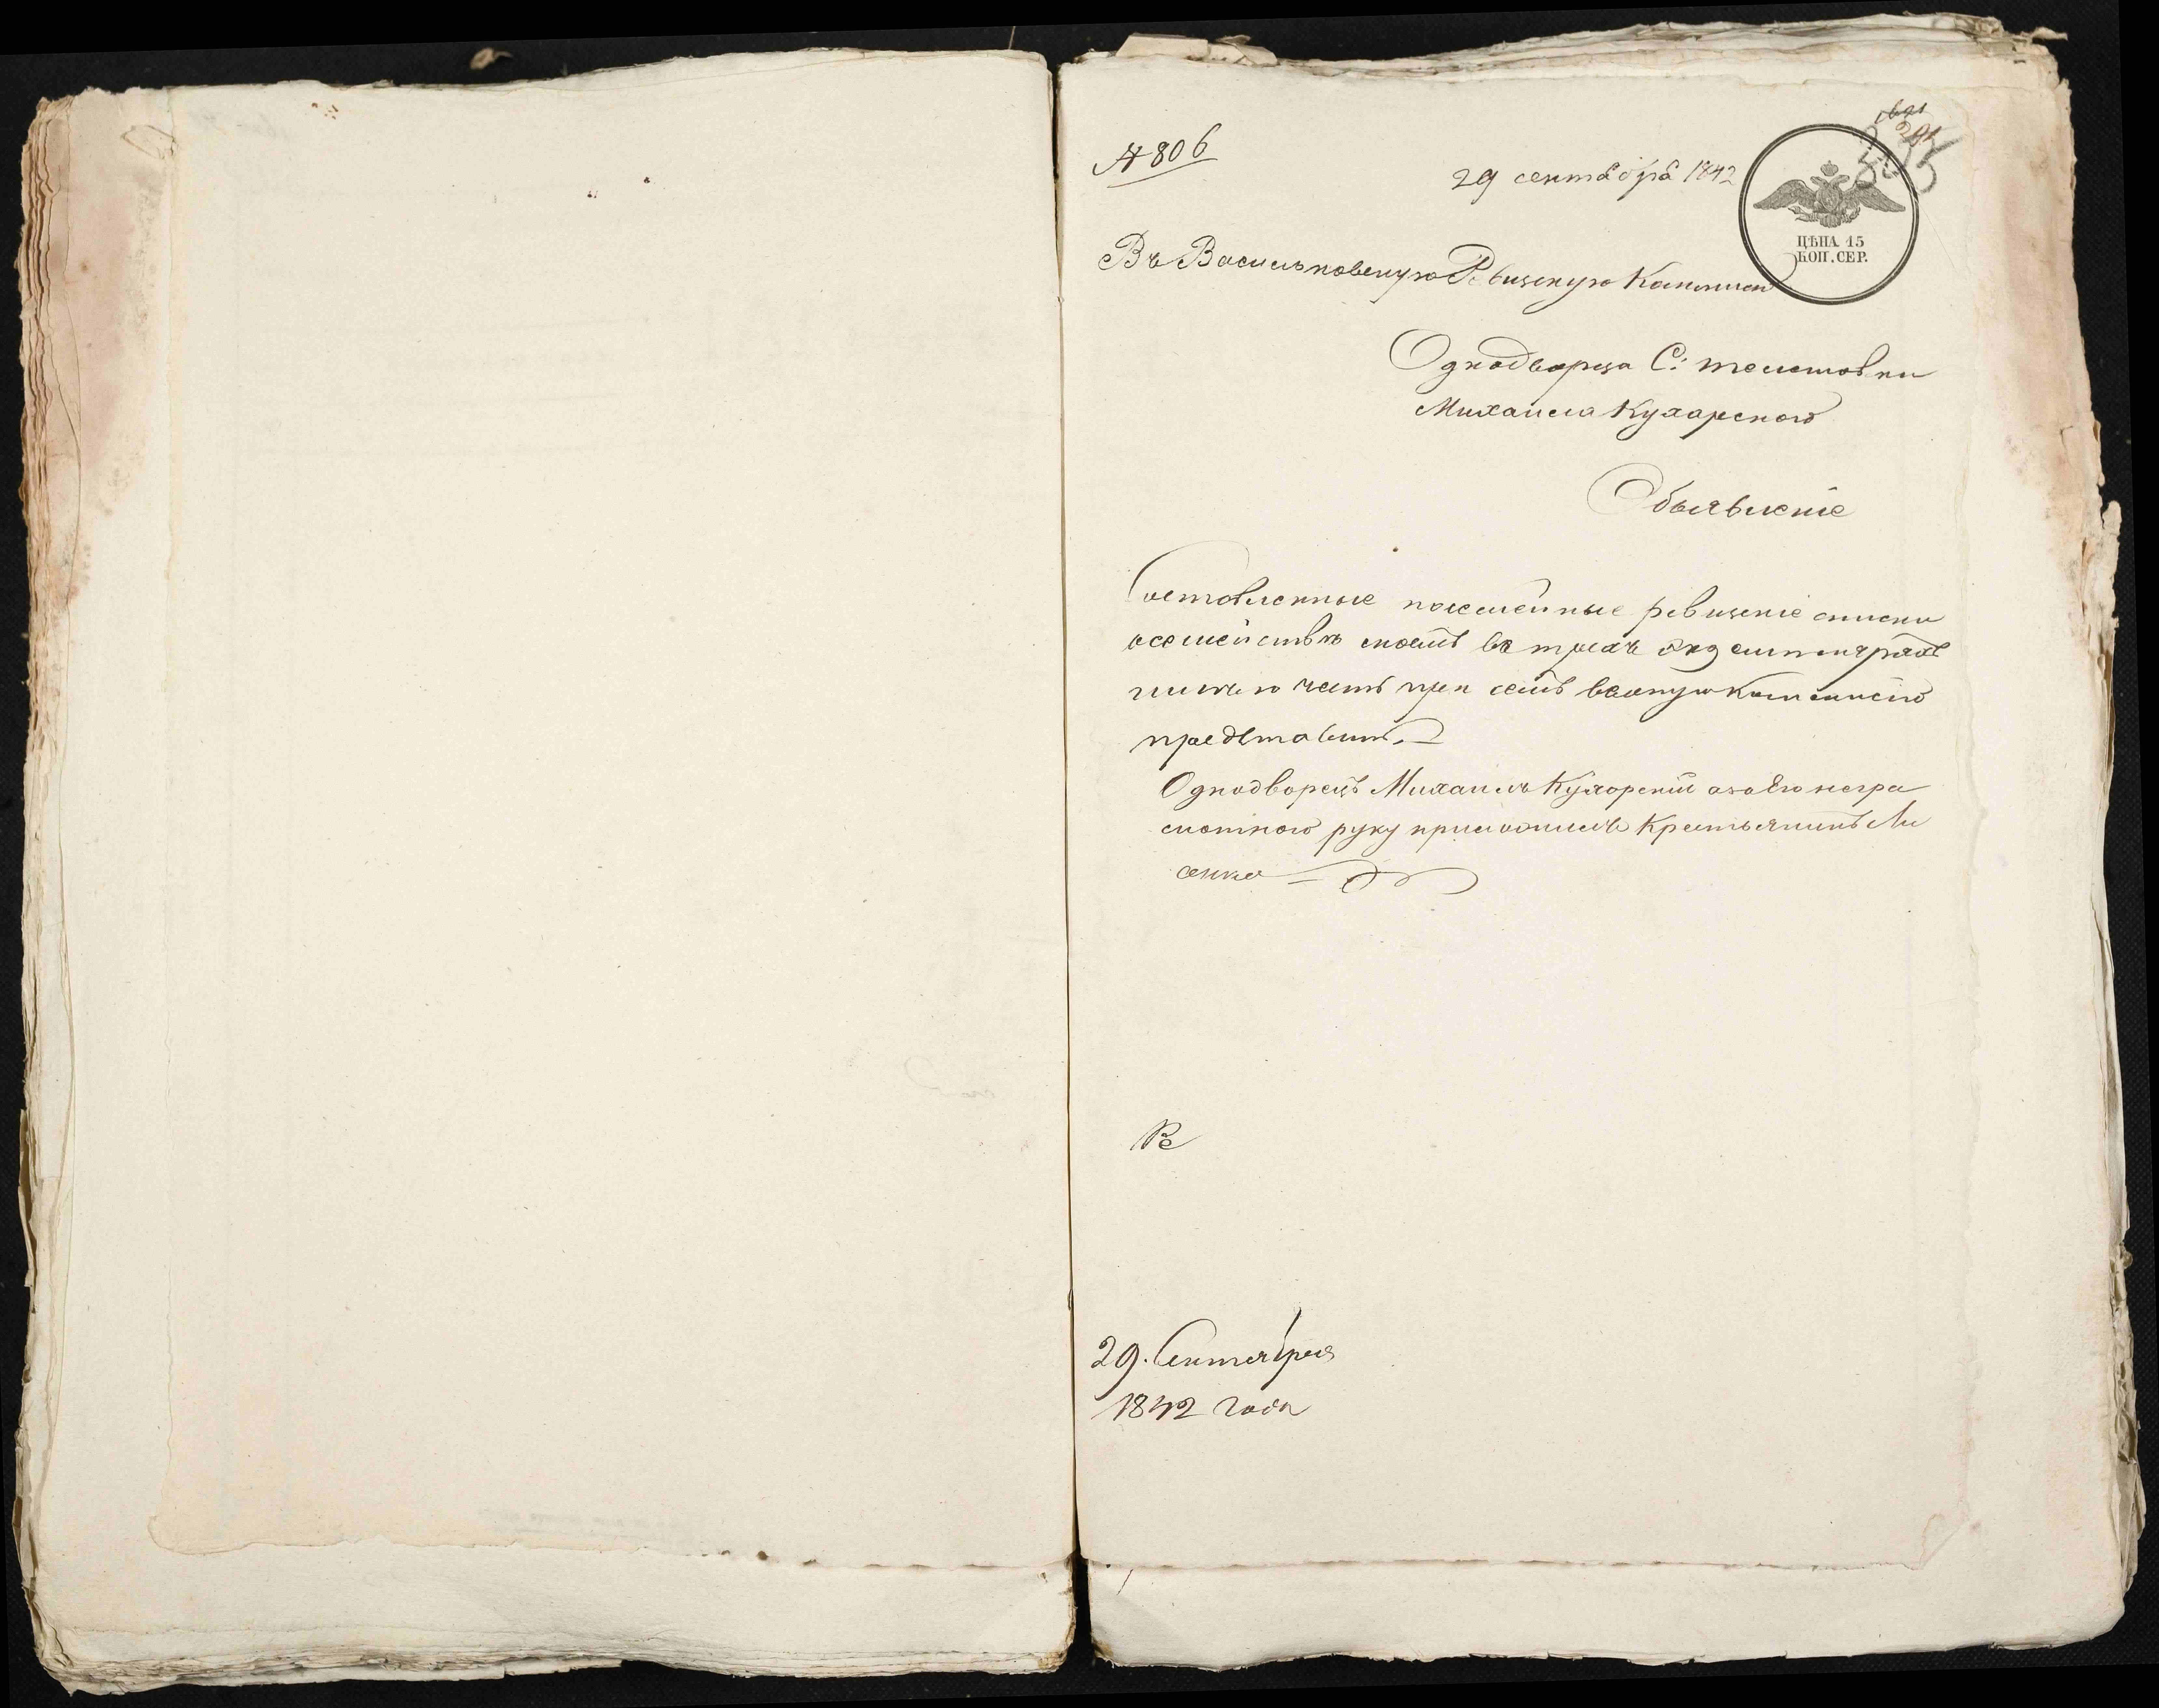 № 806
29 сентября 1842
ЦѢНА 15
КОП. СЕР.
Въ Васильковскую Ревизскую Комиси
Однодворца С: телешовки
Михаила Кухарского
Объявление
Составленные посемейные ревизские списки
о семействѣ моемъ въ трехъ экземплярахъ
честь при семъ въ оную комисию
представить. —
Однодворецъ Михаилъ Кухорский а за его негра
мотного руку приложилъ Крестьянинъ Ли
сенко
Ре
29. Сентября
1842 года